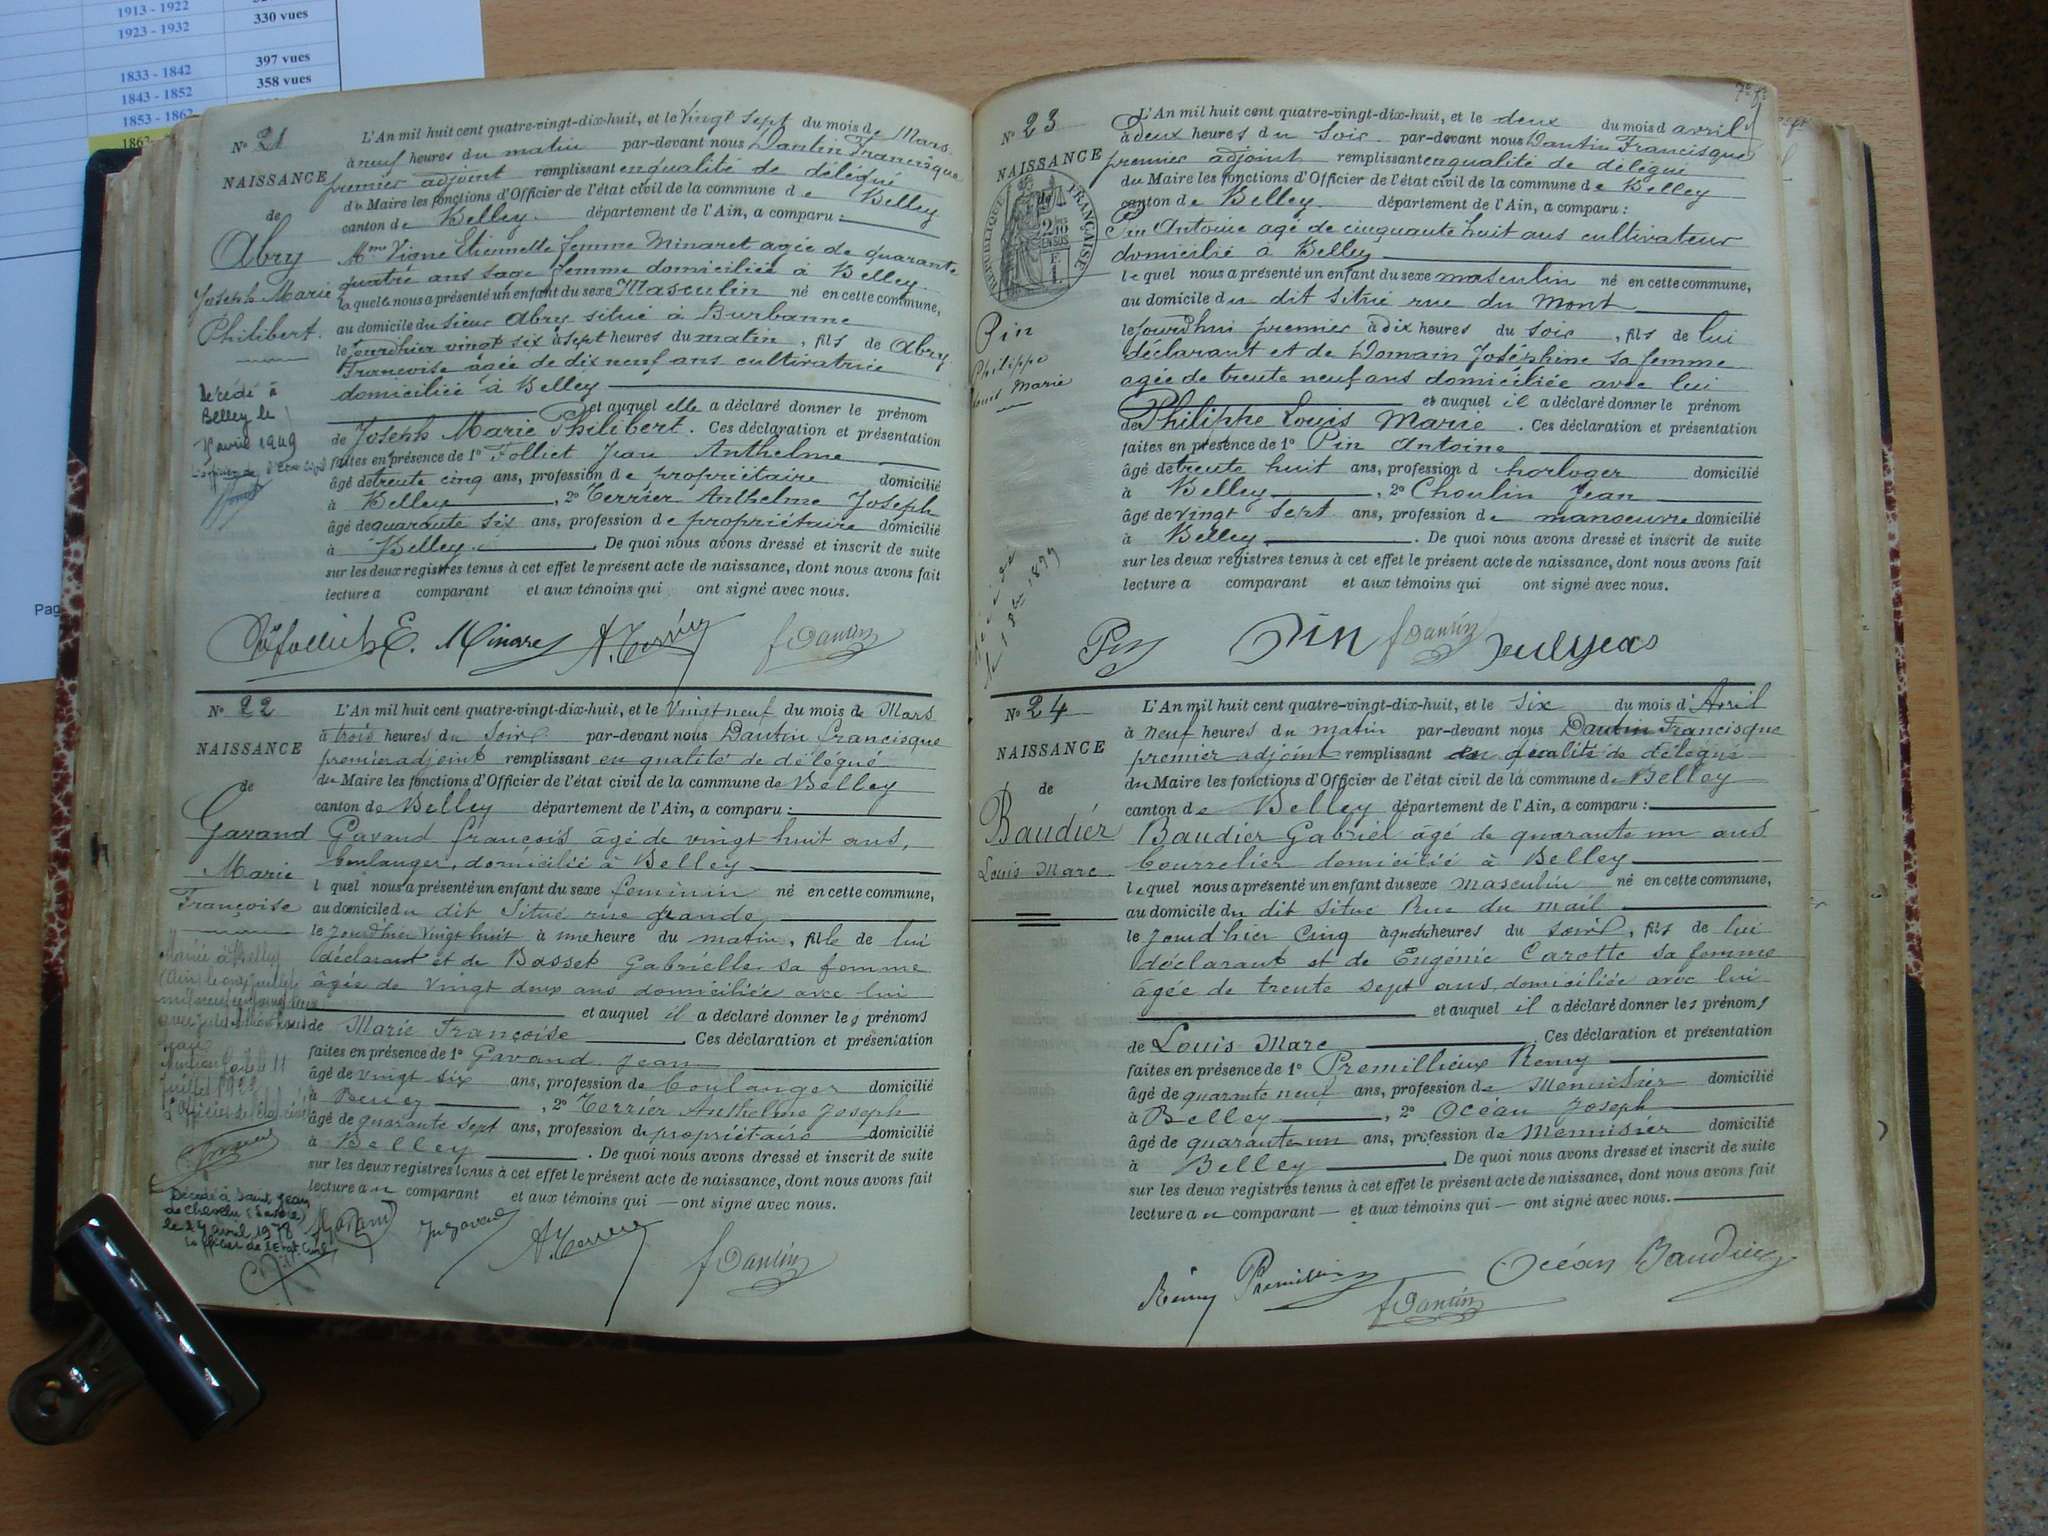 1913 - 1922
1923 - 1932
330 vues
1833 - 1842
397 vues
1843 - 1852
358 vues
1853 - 1862
Pag
N° 21
NAISSANCE
de
Abry
Joseph Marie
Philibert.
Décédé à
Belley le
avril 1949
L'An mil huit cent quatre-vingt-dix-huit, et le Vingt sept du mois de Mars
à neuf heures du matin par-devant nous Dantin Francisque
premier adjoint remplissant en qualité de délégué
du Maire les fonctions d'Officier de l'état civil de la commune de Belley
canton de Belley département de l'Ain, a comparu :
Mme Vigne Etiennette femme Minaret agée de quarante
quatre ans sage femme domiciliée à Belley
laquelle nous a présenté un enfant du sexe Masculin né en cette commune,
au domicile du sieur Abry situé à Burbanne
le jourdhier vingt six à sept heures du matin, fils de Abry
Francoise agée de dix neuf ans cultivatrice
domiciliée à Belley
et auquel elle a déclaré donner le prénom
de Joseph Marie Philibert. Ces déclaration et présentation
faites en présence de 1° Folliet Jean Anthelme
âgé de trente cinq ans, profession de propriétaire domicilié
à Belley, 2° Terrier Anthelme Joseph
âgé de quarante six ans, profession de propriétaire domicilié
à Belley. De quoi nous avons dressé et inscrit de suite
sur les deux registres tenus à cet effet le présent acte de naissance, dont nous avons fait
lecture a comparant et aux témoins qui ont signé avec nous.
E. Minaret A. Terrier f Dantin
N° 22
NAISSANCE
de
Gavand
Marie
Françoise
Mariée à Belley
(Ain) le onze juillet
11
juillet 1922
L'Officier de l'état civil
Décédée à Saint Jean
de Chevelu (Savoie)
le 24 avril 1978
L'officier de l'Etat Civil
L'An mil huit cent quatre-vingt-dix-huit, et le Vingt neuf du mois de Mars
à trois heures du Soir par-devant nous Dantin francisque
premier adjoint remplissant en qualité de délégué
du Maire les fonctions d'Officier de l'état civil de la commune de Belley
canton de Belley département de l'Ain, a comparu :
Gavand françois âgé de vingt huit ans,
boulanger, domicilié à Belley
lequel nous a présenté un enfant du sexe feminin né en cette commune,
au domicile du dit Situé rue grande,
le jourdhier vingt huit à une heure du matin, fille de lui
déclarant et de Bosset Gabrielle sa femme
âgée de vingt deux ans domiciliée avec lui
et auquel il a déclaré donner les prénoms
de Marie Françoise Ces déclaration et présentation
faites en présence de 1° Gavand Jean
âgé de vingt six ans, profession de boulanger domicilié
à, 2° Terrier Anthelme Joseph
âgé de quarante sept ans, profession de propriétaire domicilié
à Belley. De quoi nous avons dressé et inscrit de suite
sur les deux registres tenus à cet effet le présent acte de naissance, dont nous avons fait
lecture au comparant et aux témoins qui — ont signé avec nous.
A. Terrier f Dantin
N° 23
NAISSANCE
RÉPUBLIQUE FRANÇAISE
Pin
Philippe
Louis Marie
1899
L'An mil huit cent quatre-vingt-dix-huit, et le deux du mois d avril
à deux heures du soir par-devant nous Dantin Francisque
premier adjoint remplissant en qualité de délégué
du Maire les fonctions d'Officier de l'état civil de la commune de Belley
canton de Belley département de l'Ain, a comparu :
Pin Antoine agé de cinquante huit ans cultivateur
domicilié à Belley
lequel nous a présenté un enfant du sexe masculin né en cette commune,
au domicile du dit situé rue du Mont
le jourdhui premier à dix heures du soir, fils de lui
déclarant et de Domain Joséphine sa femme
agée de trente neuf ans domiciliée avec lui
et auquel il a déclaré donner le prénom
de Philippe Louis Marie. Ces déclaration et présentation
faites en présence de 1° Pin Antoine
âgé de trente huit ans, profession d horloger domicilié
à Belley, 2° Choulin Jean
âgé de vingt sept ans, profession de manoeuvre domicilié
à Belley. De quoi nous avons dressé et inscrit de suite
sur les deux registres tenus à cet effet le présent acte de naissance, dont nous avons fait
lecture a comparant et aux témoins qui ont signé avec nous.
Pin Pin f Dantin
N° 24
NAISSANCE
de
Baudier
Louis Marc
L'An mil huit cent quatre-vingt-dix-huit, et le six du mois d'Avril
à neuf heures du matin par-devant nous Dantin Francisque
premier adjoint remplissant en qualité de délégué
du Maire les fonctions d'Officier de l'état civil de la commune de Belley
canton de Belley département de l'Ain, a comparu :
Baudier Gabriel âgé de quarante un ans
bourrelier domicilié à Belley
lequel nous a présenté un enfant du sexe masculin né en cette commune,
au domicile du dit situé Rue du mail
le jourdhier cinq à quatre heures du soir, fils de lui
déclarant et de Eugénie Carotte sa femme
âgée de trente sept ans, domiciliée avec lui
et auquel il a déclaré donner les prénoms
de Louis Marc Ces déclaration et présentation
faites en présence de 1° Premillieux Remy
âgé de quarante neuf ans, profession de Menuisier domicilié
à Belley, 2° Océan Joseph
âgé de quarante un ans, profession de Menuisier domicilié
à Belley. De quoi nous avons dressé et inscrit de suite
sur les deux registres tenus à cet effet le présent acte de naissance, dont nous avons fait
lecture au comparant — et aux témoins qui — ont signé avec nous.
Rémy Premillieux f Dantin Océan Baudier